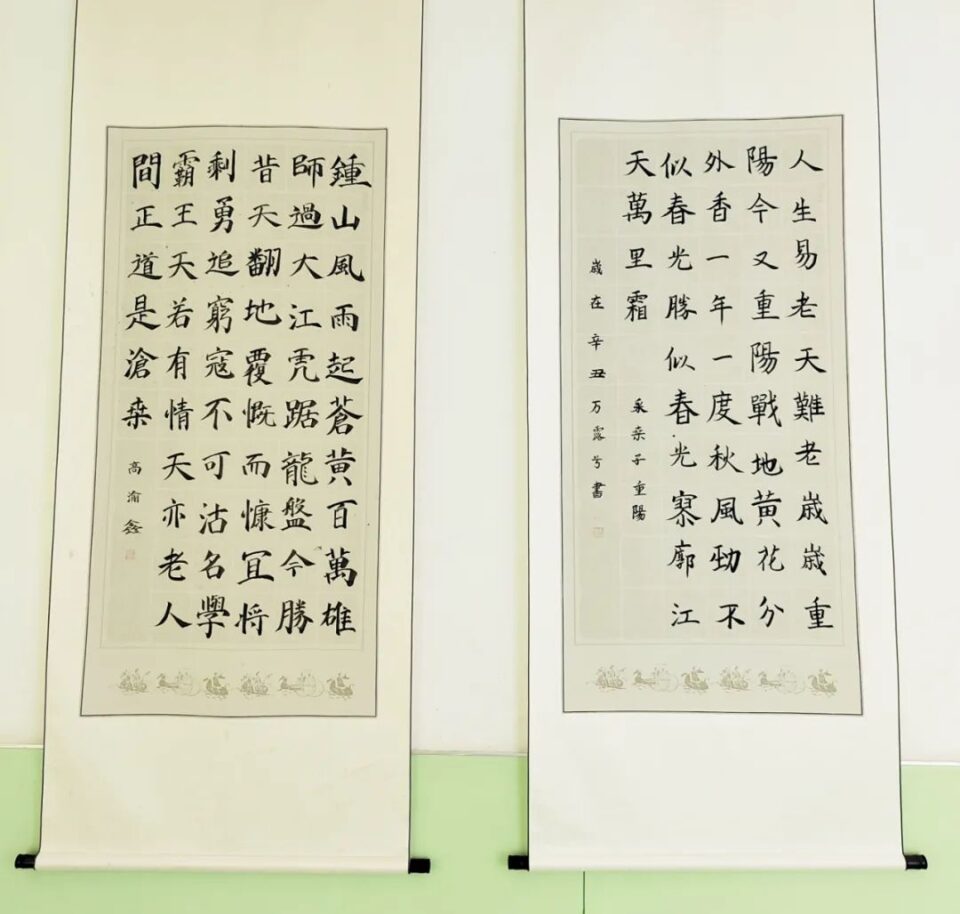 人生易老天難老嵗嵗重
陽今又重陽戰地黃花分
外香一年一度秋風勁不
似春光勝似春光寥廓江
天萬里霜
采桒子重陽
嵗在辛丑万露兮書
鍾山風雨起蒼黃百萬雄
師過大江虎踞龍盤今勝
昔天翻地覆慨而慷冝将
剩勇追窮寇不可沽名學
霸王天若有情天亦老人
間正道是滄桒
高渝鑫